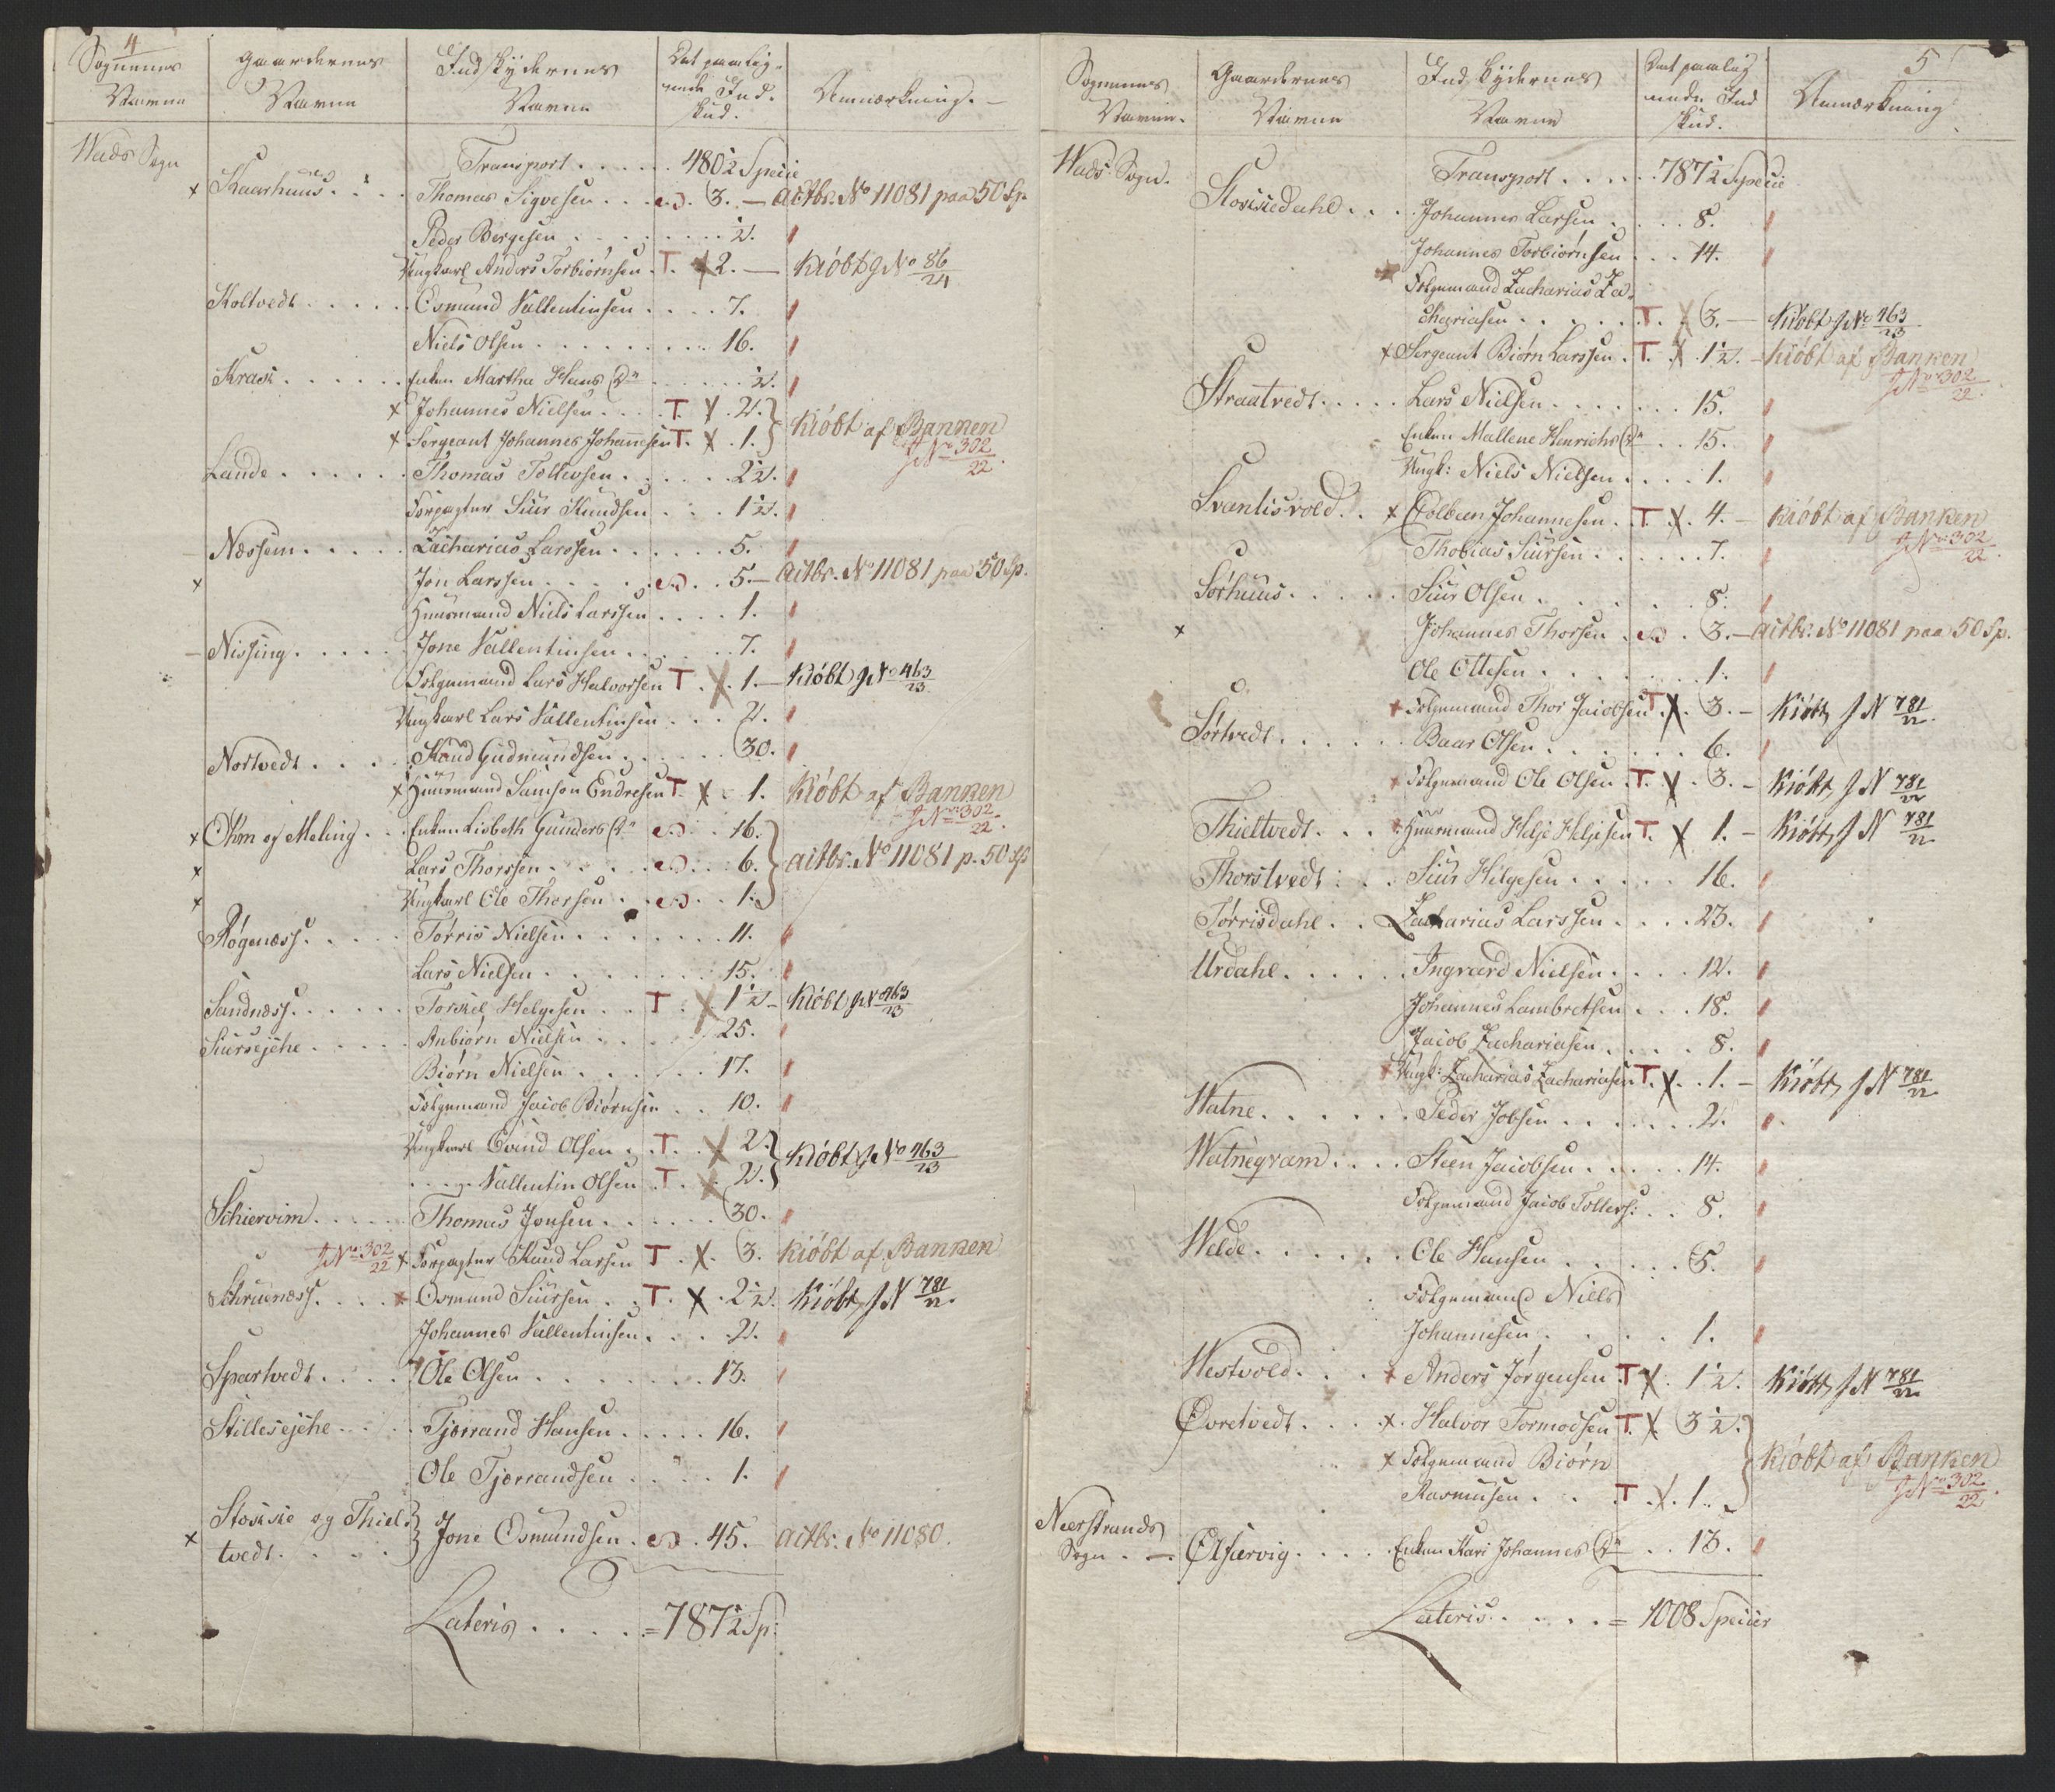 4
Sognenes Navne
Gaardernes Navne
Indskydernes Navne
Det paalignede Indskud.
Anmærkning. —
Wads Sogn
Transport . . . . . 480½ Specie
x Kaarhuus . . . . Thomas Sigvesen . . . 3. — actbr. No 11081 paa 50 Sp.
Peder Bergesen . . . . . . . ½.
Ungkarl Anders Torbiørnsen . T. x 2. — Kiøbt J No 86/24
Koltvedt . . . . . Osmund Vallentinsen . . . . 7.
Niels Olsen . . . . . . . . 16.
Krack . . . . . . Enken Martha Hans Dr . . . . . ½.
x Johannes Nielsen . . . . T. x. 2. }
x Sergeant Johannes Johannesen T. x. 1. } Kiøbt af Banken
J No 302/22.
Lande . . . . . . Thomas Tollevsen . . . . . . 2½.
Forpagter Siur Knudsen . . . 1½.
Næssem . . . . . Zacharias Larssen . . . . . . 5.
x Jon Larssen . . . . . . 5. — actbr. No 11081 paa 50 Sp.
Huusmand Niels Larssen . . . . 1.
Nissing . . . . . Jone Vallentinsen . . . . . . 7.
Følgemand Lars Halvorsen T. x. 1. — Kiøbt J No 463/23
Ungkarl Lars Vallentinsen . . . 2.
Nortvedt . . . . Knud Gudmundsen . . . . . 30.
x Huusmand Samson Endresen T. x. 1. Kiøbt af Banken
J No 302/22.
x Ohm og Meling . . Enken Lisbeth Gunders Dr . . 16. }
x Lars Thorssen . . . . . . 6. } actbr. No 11081 p. 50 Sp
x Ungkarl Ole Thorsen . . . . 1. }
Røgenæss . . . . . Torris Nielsen . . . . . . . 11.
Lars Nielsen . . . . . . . . 15.
Sandnæss . . . . . . Torkel Helgesen . . T . x 1½ — Kiøbt J No 463/23
Siursejehe . . . . . Anbiørn Nielsen . . . . . . 25.
Biørn Nielsen . . . . . . . 17.
Følgemand Jacob Biørnsen . . 10.
Ungkarl Evind Olsen . T. . x 2. }
. . . . Vallentin Olsen . T. . x 2. } Kiøbt J No 463/23
Schiervim . . . . . Thomas Jonsen . . . . . . 30.
J No 302/22 x Forpagter Knud Larsen T . x. 3. Kiøbt af Banken
Schruenæss . . . . x Osmund Siursen . . T. x . 2½. Kiøbt J N 781/22.
Johannes Vallentinsen . . . . 2.
Spartvedt . . . . Ole Olsen . . . . . . . . 13.
Stillesejehe . . . . Tjerrand Hansen . . . . . 16.
Ole Tjerrandsen . . . . . 1.
x Stoskie og Thieltvedt . . . . } Jone Osmundsen . . 45. — actbr. No 11080.
Lateris . . . . . = 787½ Sp:
5
Sognenes Navne.
Gaardernes Navne
Indskydernes Navne
Det paalignede Indskud.
Anmærkning.
Wads Sogn.
Transport . . . . . 787½ Specie
Stoskiedahl . . . . Johannes Larsen . . . . 8.
Johannes Torbiørnsen . . . 14.
x Følgemand Zacharias Zachariasen . . . . . . T. x 3. — Kiøbt J No 463/23
x Sergeant Biørn Larssen . T. x. 1½. — Kiøbt af Banken
J No 302/22.
Straatvedt . . . . . Lars Nielsen . . . . . . . 15.
Enken Mallene Henrichs Dr . . 15.
Ungk: Niels Nielsen . . . . 1.
Svantisvold . . x Colbeen Johannesen . T. x. 4. — Kiøbt af Banken
J No 302/22.
Thobias Siursen . . . . . . 7.
Sørhuus . . . . . Siur Olsen . . . . . . . 8.
x Johannes Thorsen . . . 3. — actbr. No 11081 paa 50 Sp.
Ole Ottesen . . . . . . . 1.
x Følgemand Thor Jacobsen T. x. 3. — Kiøbt J N 781/22.
Sørtvedt . . . . . . Baar Olsen . . . . . . . 6.
x Følgemand Ole Olsen . T. x . 3. — Kiøbt J N 781/22
Thieltvedt . . . . x Huusmand Helje Heljesen T. x 1. — Kiøbt J N 781/22
Thorstvedt : . . Siur Helgesen . . . . . 16.
Tørrisdahl . . Zacharias Larssen . . . . 23.
Urdahl . . . . . . Ingvard Nielsen . . . . 12.
Johannes Lambretsen . . . 18.
Jacob Zachariasen . . . . 8.
x Ungk: Zacharias Zachariasen T. x. . 1. — Kiøbt J N 781/22
Watne . . . . . . Peder Jobsen . . . . . . . 2.
Watnegram . . . . Steen Jacobsen . . . . . 14.
Følgemand Jacob Tollevs: . . 8.
Welde . . . . . . Ole Hansen . . . . . . 5.
Følgemand Niels
Johannesen . . . . . 1.
Westvold . . . . x Anders Jørgensen T. x. 1½. Kiøbt J N 781/22
Øvretvedt . . . . x. Halvor Tormodsen T. x 3½. }
x Følgemand Biørn
Rasmusen . . . T. x. 1. } Kiøbt af Banken
J No 302/22.
Neerstrands Sogn . — Øhservig . . . . . Enken Kari Johannes Dr . . 13.
Lateris . . . . . = 1008 Specier